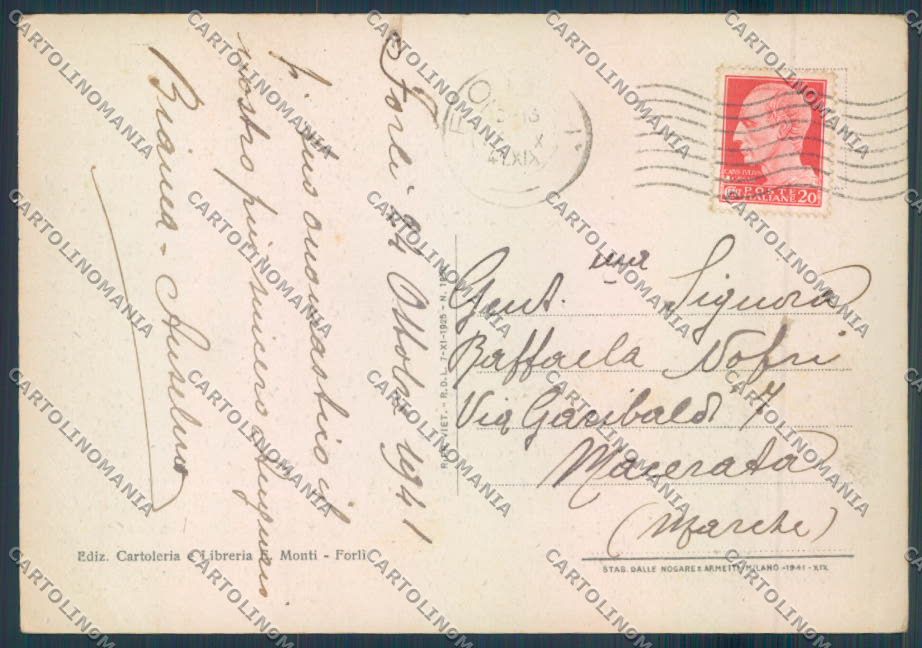 Forlì 24 Ottobre 1941
pº tuo onomastico il
nostro più sincero Augurio
Bianca - Anselmo
FO
15-16
X
41 XIX
CAIVS IVLIVS
POSTE
ITALIANE 20
Gent.ma Signora
Raffaela Nofri
Via Garibaldi 7
Macerata
(Marche)
RIP. VIET. - R.D.L. 7-XI-1925 - N.
Ediz. Cartoleria e Libreria E. Monti - Forlì
STAB. DALLE NOGARE E ARMETTI MILANO -1941 - XIX
CARTOLINOMANIA